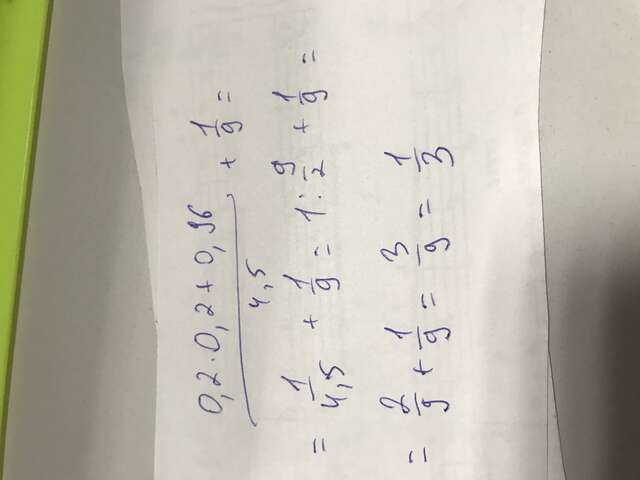 (0,2 · 0,2 + 0,96)/4,5 + 1/9 =
= 1/4,5 + 1/9 = 1 : 9/2 + 1/9 =
= 2/9 + 1/9 = 3/9 = 1/3